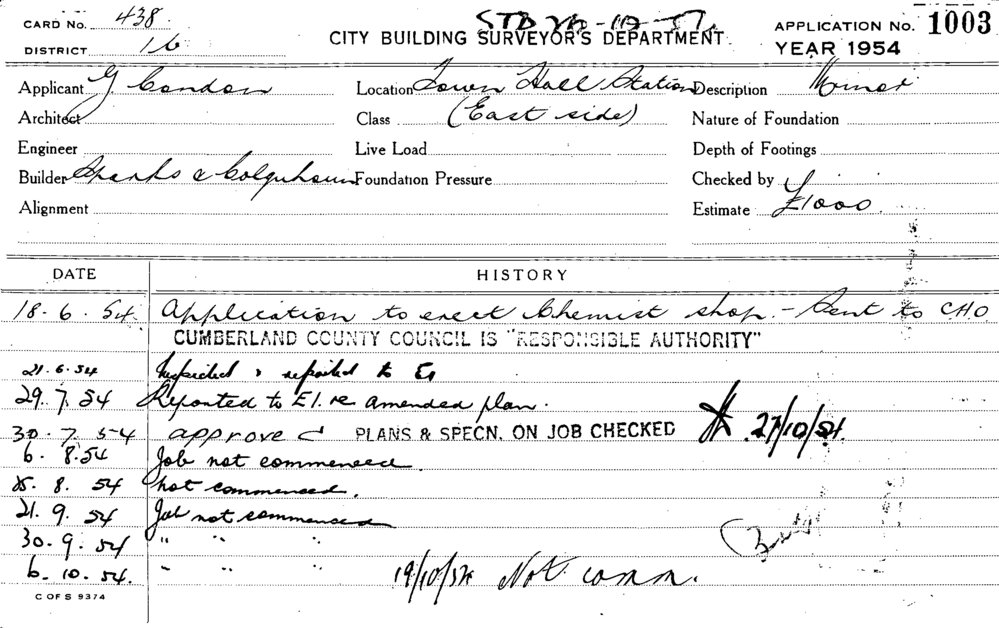 CARD No. 438
DISTRICT 16
CITY BUILDING SURVEYOR'S DEPARTMENT
APPLICATION No. 1003
YEAR 1954
Applicant G. Condon Location Town Hall Station Description Minor
Architect Class (East side) Nature of Foundation
Engineer Live Load Depth of Footings
Builder Sparks & Colquhoun Foundation Pressure Checked by
Alignment Estimate £1000
DATE HISTORY
18.6.54 Application to erect Chemist shop. - Sent to CHO
CUMBERLAND COUNTY COUNCIL IS "RESPONSIBLE AUTHORITY"
21.6.54 Inspected & reported to E1
29.7.54 Reported to E1. re amended plan.
30.7.54 approved PLANS & SPECN. ON JOB CHECKED 27/10/54.
6.8.54 Job not commenced.
8.54 Not commenced.
21.9.54 Job not commenced
30.9.54 " " "
6.10.54. " " " 19/10/54 Not comm.
C OF S 9374